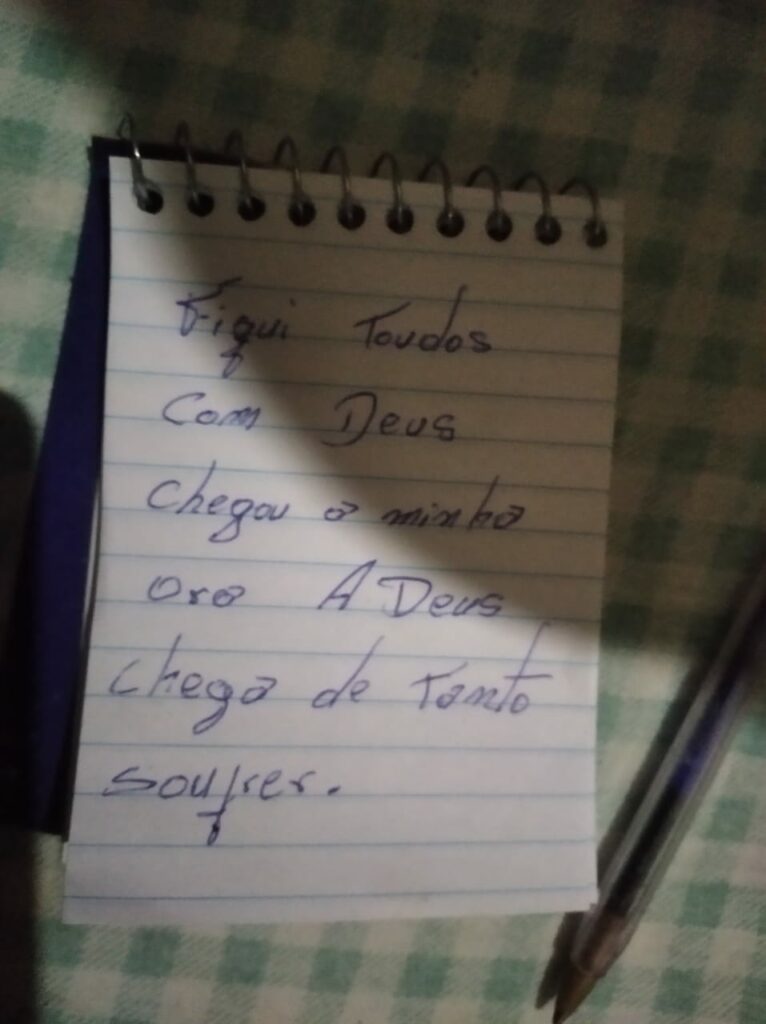 Fiqui Toudos
Com Deus
Chegou a minha
Ora A Deus
chega de Tanto
soufrer.